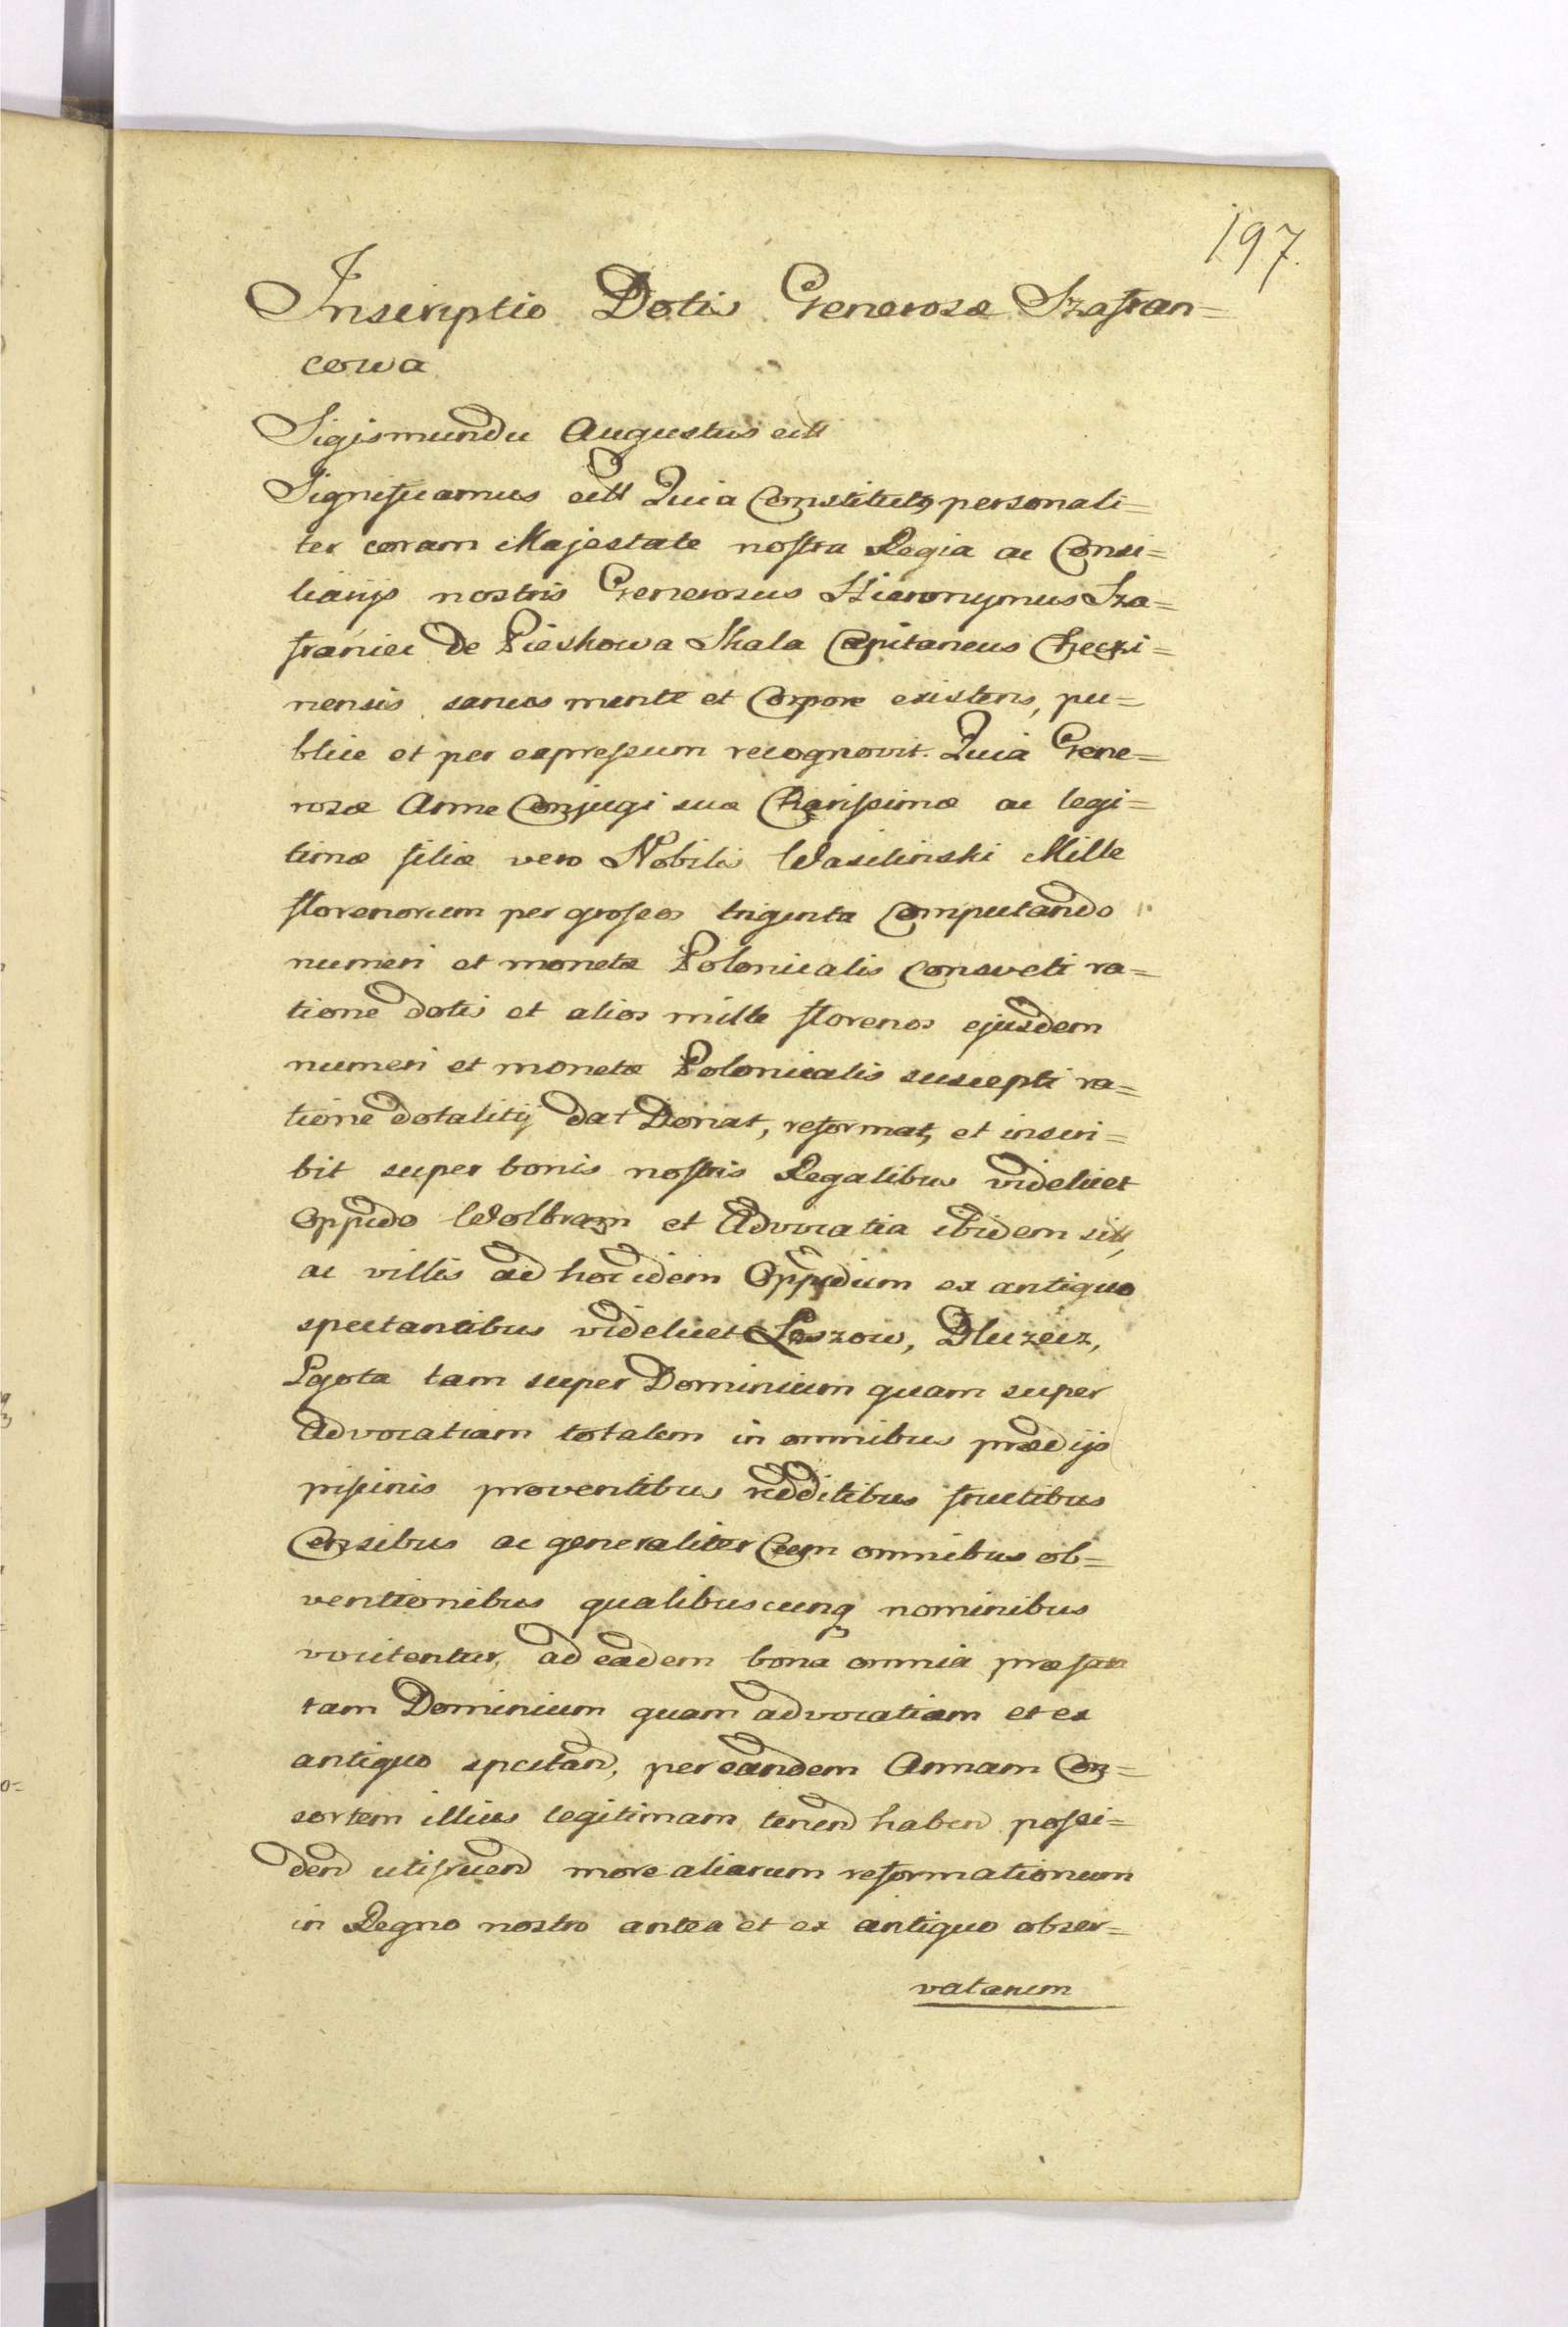 197.
Inscriptio Dotis Generosæ Szafran=
cowa
Sigismundu Augustus ett
Significamus ett Quia Constitutq personali=
ter coram Majestate nostra Regia ac Consi=
liarijs nostris Generosus Hieronymus Sza=
franiec De Pieskowa Skala Capitaneus Checzi=
nensis sanus mente et Corpore existens, pu=
blice et per expressum recognovit. Quia Gene=
rosæ Anne Conjugi suæ Charissimæ ac legi=
timæ filiæ vero Nobilis Wasilinski Mille
florenorum per grossos triginta Computando
numeri et monetæ Polonicalis consveti ra=
tione dotis et alios mille florenos ejusdem
numeri et monetæ Polonicalis suscepti ra=
tione dotalitij dat Donat, reformat, et inscri=
bit super bonis nostris Regalibus videlicet
Oppido Wolbram et Advocatia ibidem sitt,
ac villis ad hoc idem Oppidum ex antiquo
spectantibus videlicet Loszow, Dluzecz,
Lgota tam super Dominium quam super
Advocatiam totalem in omnibus prædijs
piscinis proventibus redditibus fructibus
Censibus ac generaliter Cum omnibus ob=
ventionibus qualibuscunq nominibus
vocitentur, ad eadem bona omnia præfat
tam Dominium quam advocatiam et ex
antiquo spectan, per eandem Annam Con=
sortem illius legitimam tenend haben possi=
dend utifruend more aliarum reformationum
in Regno nostro antea et ex antiquo obser=
vatarum